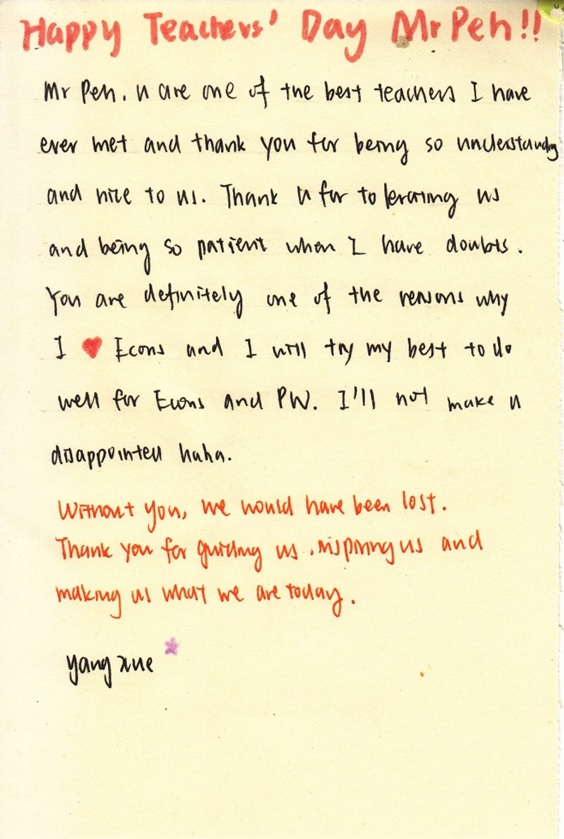 Happy Teachers' Day Mr Peh!!
Mr Peh. U are one of the best teachers I have
ever met and thank you for being so understanding
and nice to us. Thank U for tolerating us
and being so patient when I have doubts.
You are definitely one of the reasons why
I ♥ Econs and I will try my best to do
well for Econs and PW. I'll not make u
disappointed haha.
Without you, we would have been lost.
Thank you for guiding us, inspiring us and
making us what we are today.
yang xue